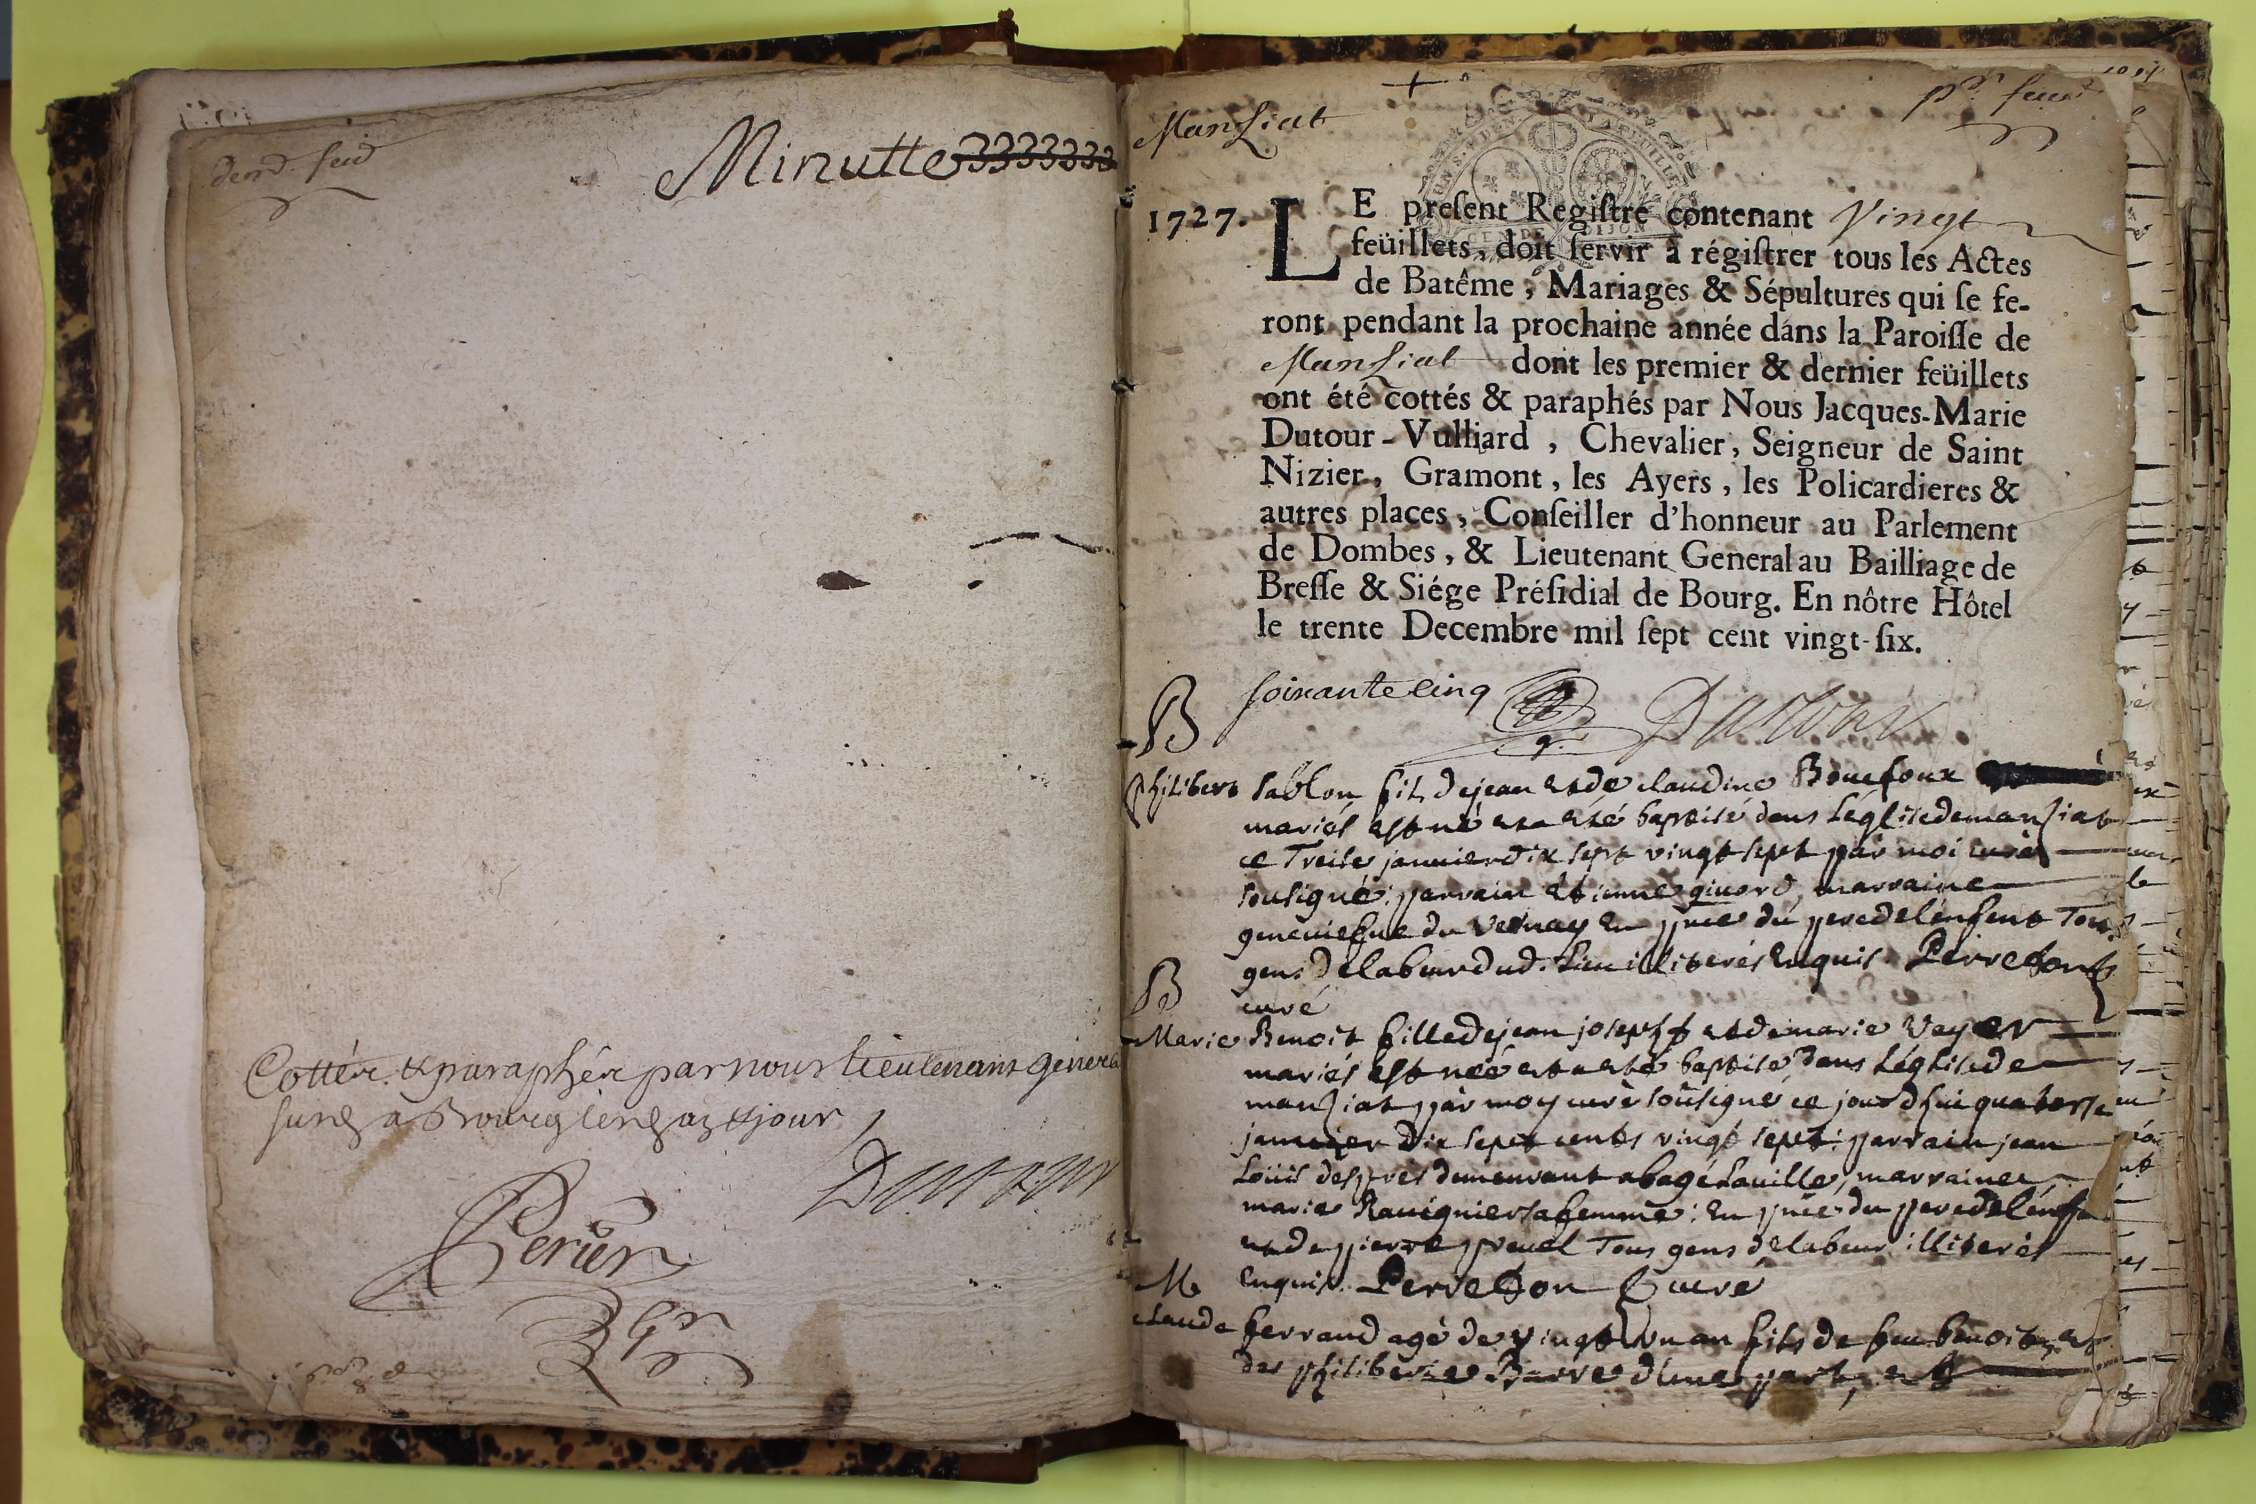 Minutte
Cottér & paraphér par nous Lieutenant general
a Bourg & jour
Dutour
Perier
+
Manziat
pr. feuil
1727.
LE preſent Regiſtre contenant Vingt
feüillets, doit ſervir à régiſtrer tous les Actes
de Batême, Mariages & Sépultures qui ſe fe-
ront pendant la prochaine année dans la Paroiſſe de
Manziat dont les premier & dernier feüillets
ont été cottés & paraphés par Nous Jacques-Marie
Dutour-Vulliard, Chevalier, Seigneur de Saint
Nizier, Gramont, les Ayers, les Policardieres &
autres places, Conſeiller d'honneur au Parlement
de Dombes, & Lieutenant General au Bailliage de
Breſſe & Siége Préſidial de Bourg. En nôtre Hôtel
le trente Decembre mil ſept cent vingt-ſix.
soixante cinq Dutour
B
Philibert Sablon fils de jean et de claudine Bouefoux
mariés est né et a eté baptisé dans Léglise de manziat
ce Treise janvier dix sept vingt sept par moi curé
sousigné: parrain étienne givord, marraine
geneviefue du Vernay En pnce du pere de lénfent Tous
gens de labeur dud. Lieu illiterés Enquis. Perredon
curé
B
Marie Benoit fille de jean joseph et de marie Veyer
mariés est née et a eté baptisé dans Léglise de
manziat par moy curé sousigné ce jourd'hui quatorse
janvier Dix sept cents vingt sept: parrain jean
Loüis despres demeurant a bagé La uille, marraine
marie Rauignier sa femme: En pnce du pere de lénfent
et de pierre preuel Tous gens de labeur illiterés
Enquis. Perredon Curé
M
claude ferrand agé de vingt un an fils de feu benoit et
de philiberte Barre d'une part, et